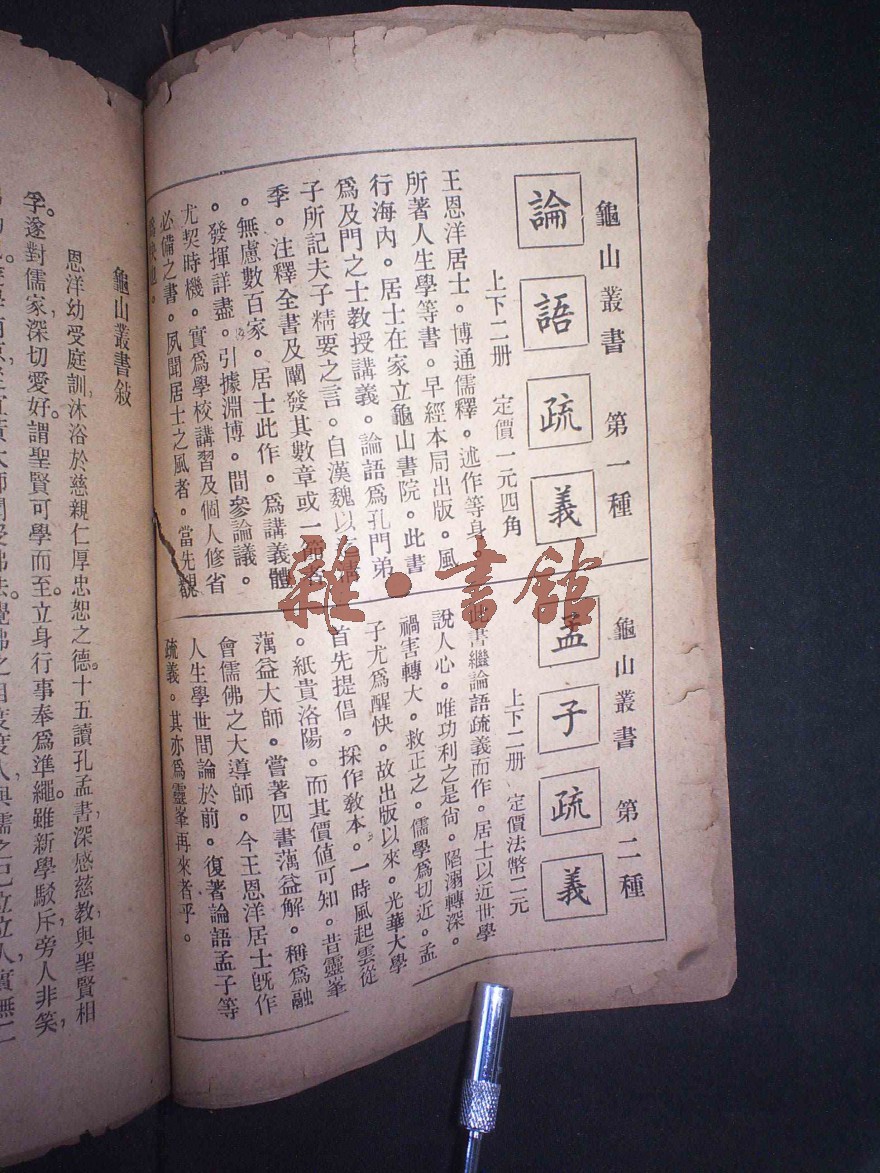 龜山叢書 第一種
論語疏義
上下二册 定價一元四角
王恩洋居士。博通儒釋。述作等身。
所著人生學等書。早經本局出版。風
行海內。居士在家立龜山書院。此書
爲及門之士教授講義。論語爲孔門弟
子所記夫子精要之言。自漢魏以
季。注釋全書及闡發其數章或一節者
。無慮數百家。居士此作。爲講義體
。發揮詳盡。引據淵博。間參論議。
尤契時機。實爲學校講習及個人修省
必備之書。夙聞居士之風者。當先覩
爲快也。
龜山叢書 第二種
孟子疏義
上下二册 定價法幣二元
此書繼論語疏義而作。居士以近世學
說人心。唯功利之是尙。陷溺轉深。
禍害轉大。救正之。儒學爲切近。孟
子尤爲醒快。故出版以來。光華大學
首先提倡。採作敎本。一時風起雲從
。紙貴洛陽。而其價值可知。昔靈峯
蕅益大師。嘗著四書蕅益解。稱爲融
會儒佛之大導師。今王恩洋居士旣作
人生學世間論於前。復著論語孟子等
疏義。其亦爲靈峯再來者乎。
龜山叢書敍
恩洋幼受庭訓,沐浴於慈親仁厚忠恕之德。十五讀孔孟書深感慈教與聖賢相
孚。遂對儒家,深切愛好。謂聖賢可學而至立身行事奉爲準繩。雖新學駁斥,旁人非笑,